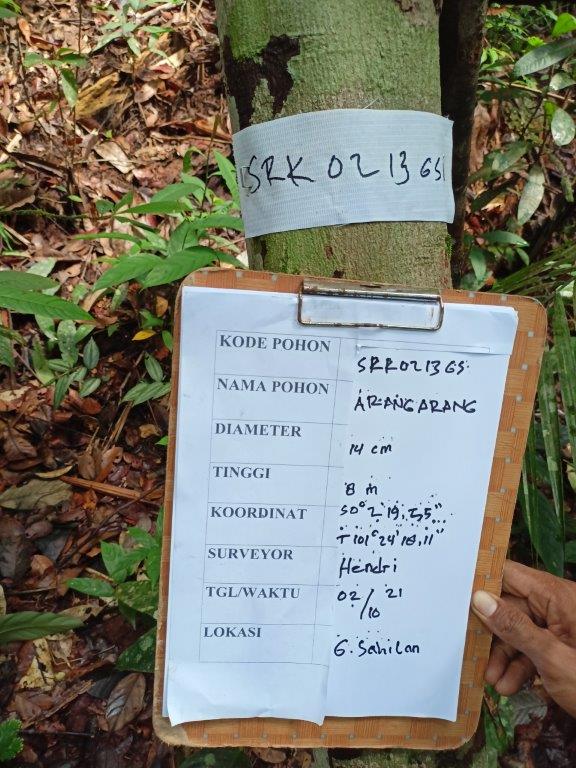 SRK 0213 GS
KODE POHON SRK0213GS.
NAMA POHON ARANG ARANG
DIAMETER 14 cm
TINGGI 8 m
KOORDINAT S0°2'19,55"
T101°24'18,11"
SURVEYOR Hendri
TGL/WAKTU 02/10 21
LOKASI G. Sahilan